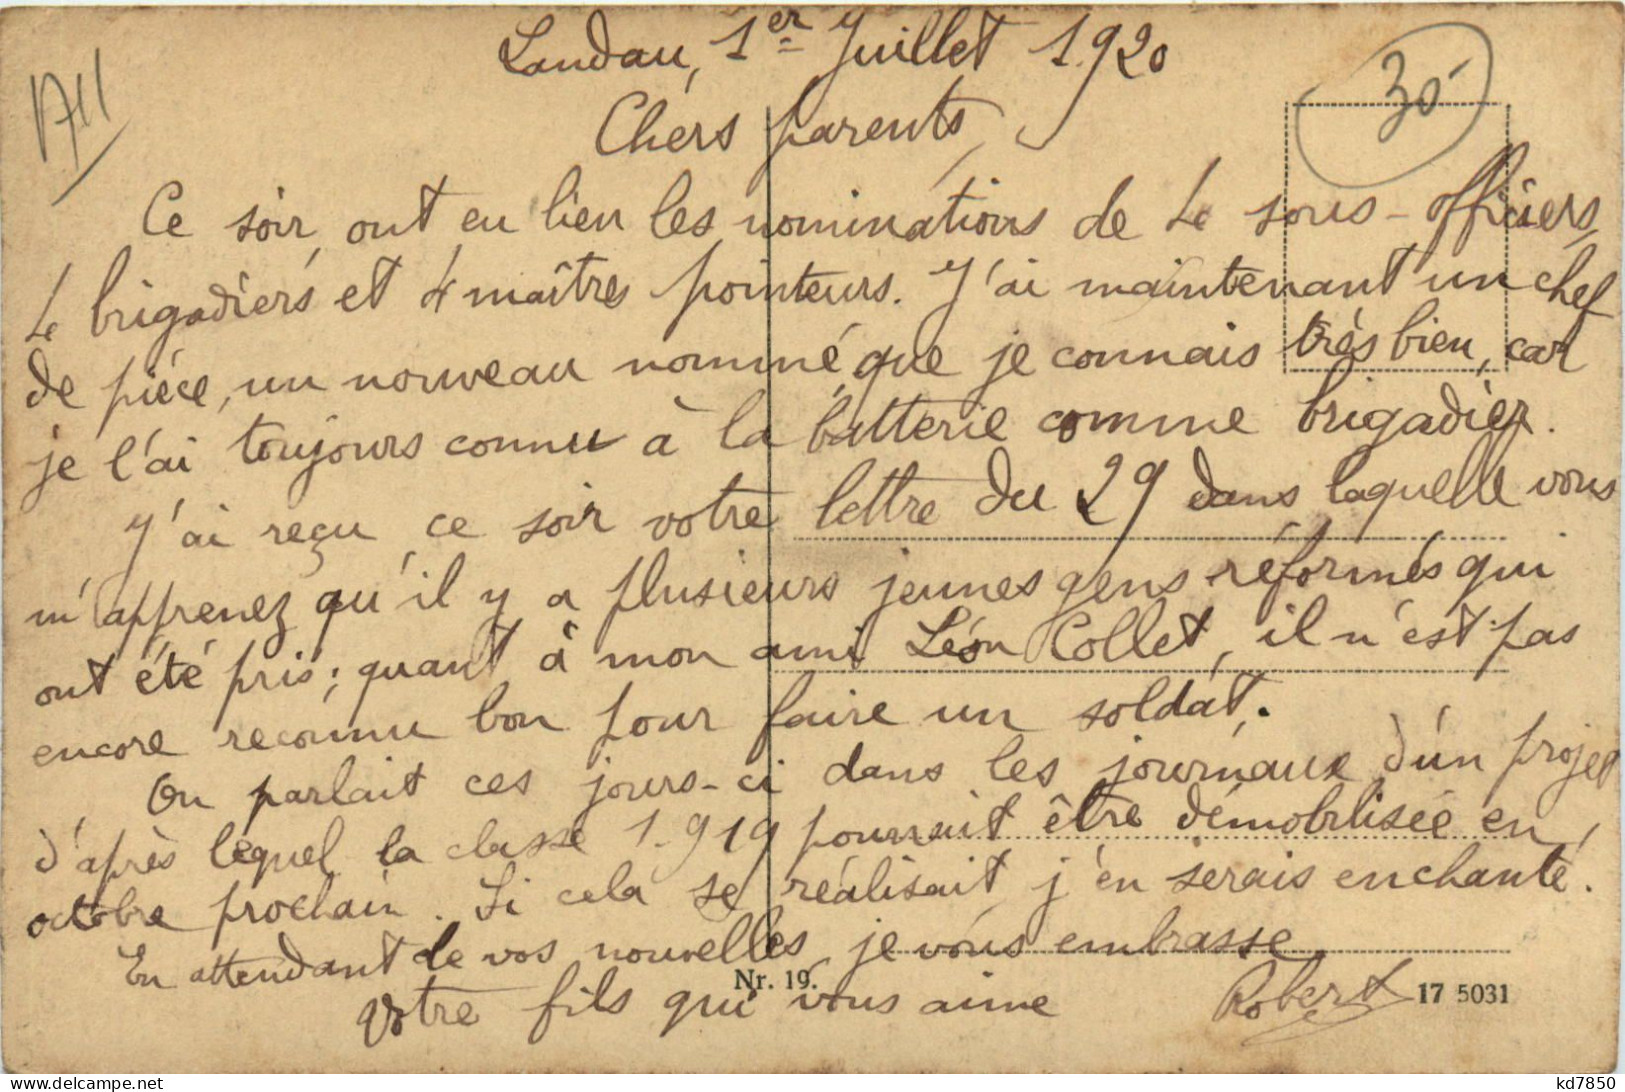 Landau, 1er Juillet 1.920
Chers parents,
Ce soir, ont eu lieu les nominations de 4 sous-officiers,
4 brigadiers et 4 maîtres pointeurs. J'ai maintenant un chef
de pièce, un nouveau nommé que je connais très bien, car
je l'ai toujours connu à la batterie comme brigadier.
J'ai reçu ce soir votre lettre du 29 dans laquelle vous
m'apprenez qu'il y a plusieurs jeunes gens réformés qui
ont été pris; quant à mon ami Léon Collet, il n'est pas
encore reconnu bon pour faire un soldat.
On parlait ces jours-ci dans les journaux d'un projet
d'après lequel la classe 1.919 pourrait être démobilisée en
octobre prochain. Si cela se réalisait, j'en serais enchanté.
En attendant de vos nouvelles, je vous embrasse
Votre fils qui vous aime Robert
Nr. 19.
17 5031
30
kd7850